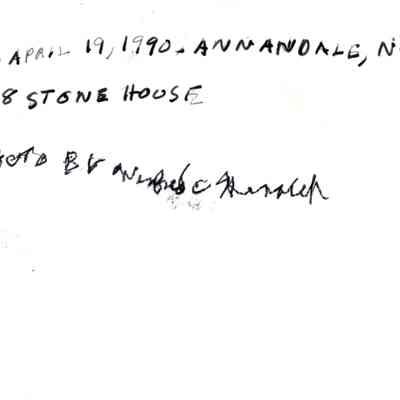 APRIL 19, 1990. ANNANDALE, N
8 STONE HOUSE
BY